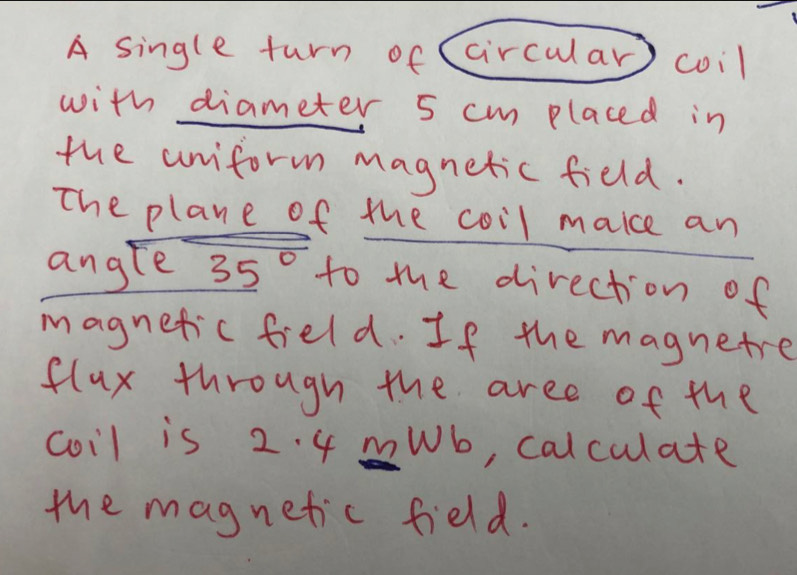 A single turn of circular coil
with diameter 5 cm placed in
the uniform magnetic field.
The plane of the coil make an
angle 35° to the direction of
magnetic field. If the magnetic
flux through the area of the
coil is 2.4 mWb, calculate
the magnetic field.